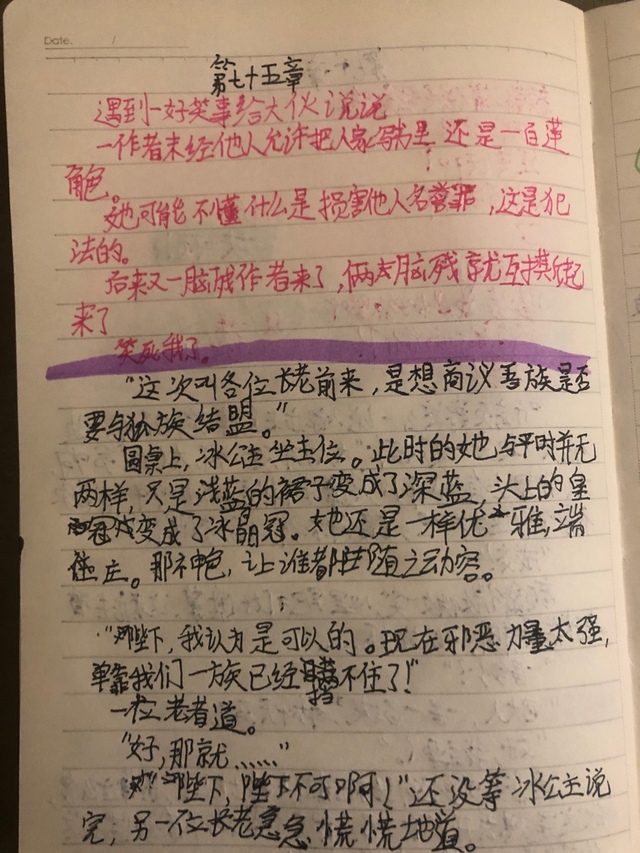 Date. /
第七十五章
遇到一好笑事给大伙说说
一作者未经他人允许把人家写书里 还是一白莲
角色。
她可能不懂什么是损害他人名誉罪，这是犯
法的。
后来又一脑残作者来了，俩脑残就互掐起
来了
笑死我了。
“这次叫各位长老前来，是想商议吾族是否
要与狐族结盟。”
圆桌上，冰公主坐主位。此时的她与平时并无
两样，只是浅蓝的裙子变成了深蓝，头上的皇
冠变成了冰晶冠。她还是一样优雅，端
庄。那神色，让谁都随之动容。
“陛下，我认为是可以的。现在邪恶力量太强，
单靠我们一族已经挡不住了！”
一位老者道。
“好，那就……”
“陛下，陛下不可啊！”还没等冰公主说
完，另一位长老急急慌慌地道。